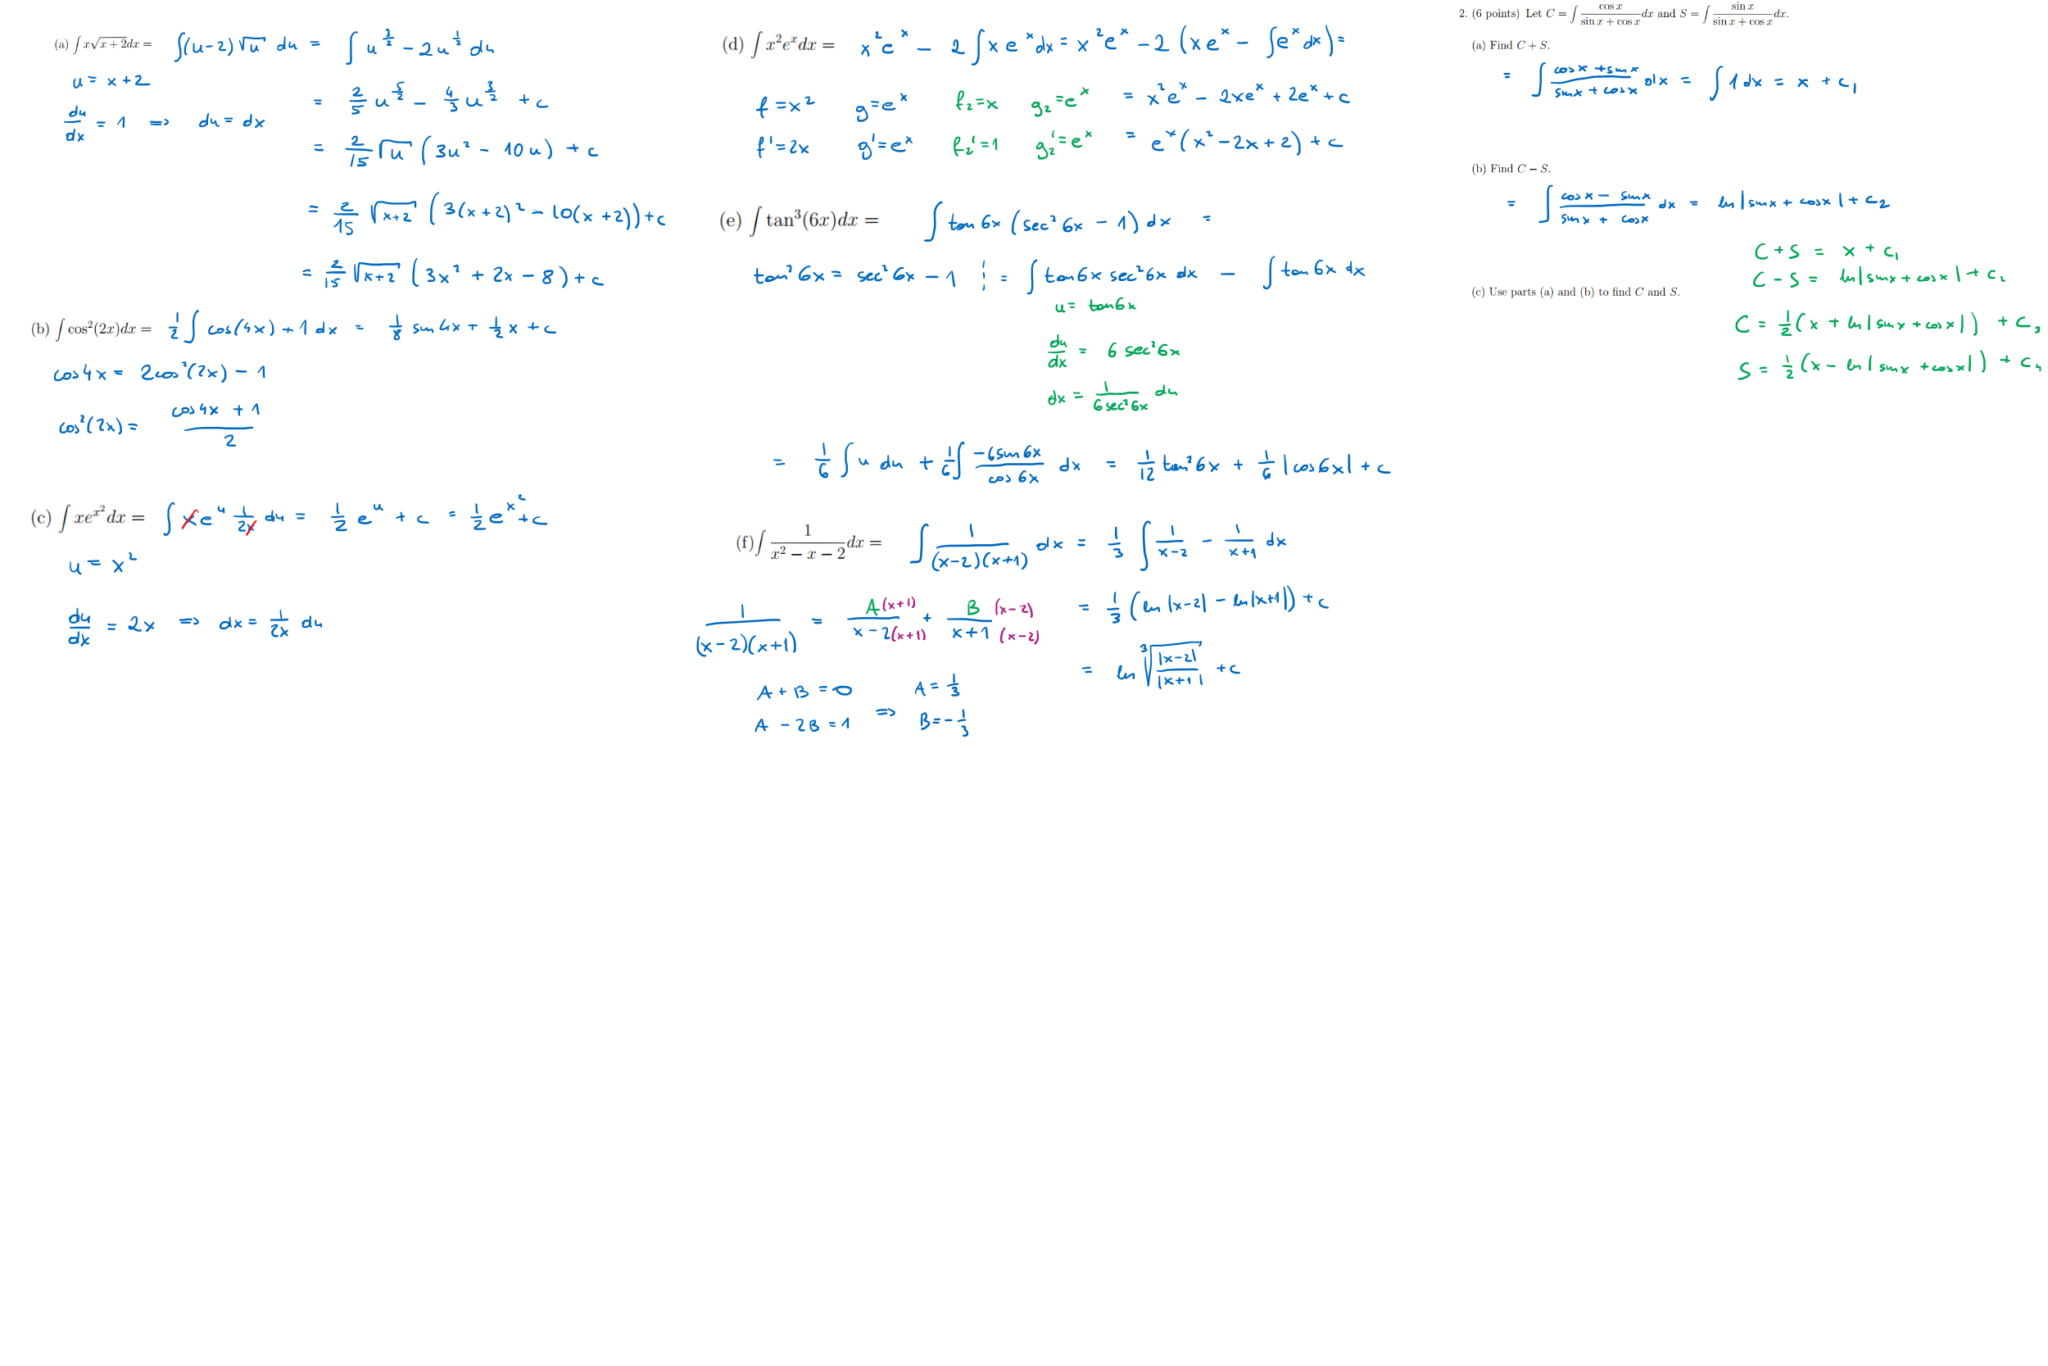 (a) ∫x√(x+2)dx = ∫(u-2)√u du = ∫ u^(3/2) - 2u^(1/2) du
u = x+2
= 2/5 u^(5/2) - 4/3 u^(3/2) + c
du/dx = 1 => du = dx
= 2/15 √u (3u² - 10u) + c
= 2/15 √(x+2) (3(x+2)² - 10(x+2)) + c
= 2/15 √(x+2) (3x² + 2x - 8) + c
(b) ∫cos²(2x)dx = 1/2 ∫ cos(4x) + 1 dx = 1/8 sin 4x + 1/2 x + c
cos4x = 2cos²(2x) - 1
cos²(2x) = (cos4x + 1)/2
(c) ∫xe^(x²)dx = ∫ x e^u 1/(2x) du = 1/2 e^u + c = 1/2 e^(x²) + c
u = x²
du/dx = 2x => dx = 1/(2x) du
(d) ∫x²e^x dx = x²e^x - 2∫x e^x dx = x²e^x - 2(xe^x - ∫e^x dx) =
f = x² g = e^x f₂ = x g₂ = e^x = x²e^x - 2xe^x + 2e^x + c
f' = 2x g' = e^x f₂' = 1 g₂' = e^x = e^x(x² - 2x + 2) + c
(e) ∫tan³(6x)dx = ∫ tan6x (sec²6x - 1) dx =
tan²6x = sec²6x - 1 ¦ = ∫ tan6x sec²6x dx - ∫ tan6x dx
u = tan6x
du/dx = 6 sec²6x
dx = 1/(6sec²6x) du
= 1/6 ∫u du + 1/6 ∫ (-6sin6x)/(cos6x) dx = 1/12 tan²6x + 1/6 |cos6x| + c
(f) ∫ 1/(x² - x - 2) dx = ∫ 1/((x-2)(x+1)) dx = 1/3 ∫ 1/(x-2) - 1/(x+1) dx
1/((x-2)(x+1)) = A(x+1)/(x-2(x+1)) + B(x-2)/(x+1(x-2)) = 1/3 (ln|x-2| - ln|x+1|) + c
= ln ³√(|x-2|/|x+1|) + c
A + B = 0 A = 1/3
A - 2B = 1 => B = -1/3
2. (6 points) Let C = ∫ cos x/(sin x + cos x) dx and S = ∫ sin x/(sin x + cos x) dx.
(a) Find C + S.
= ∫ (cosx + sinx)/(sinx + cosx) dx = ∫1dx = x + c₁
(b) Find C − S.
= ∫ (cosx - sinx)/(sinx + cosx) dx = ln|sinx + cosx| + c₂
C + S = x + c₁
C - S = ln|sinx + cosx| + c₂
(c) Use parts (a) and (b) to find C and S.
C = 1/2 (x + ln|sinx + cosx|) + c₃
S = 1/2 (x - ln|sinx + cosx|) + c₄